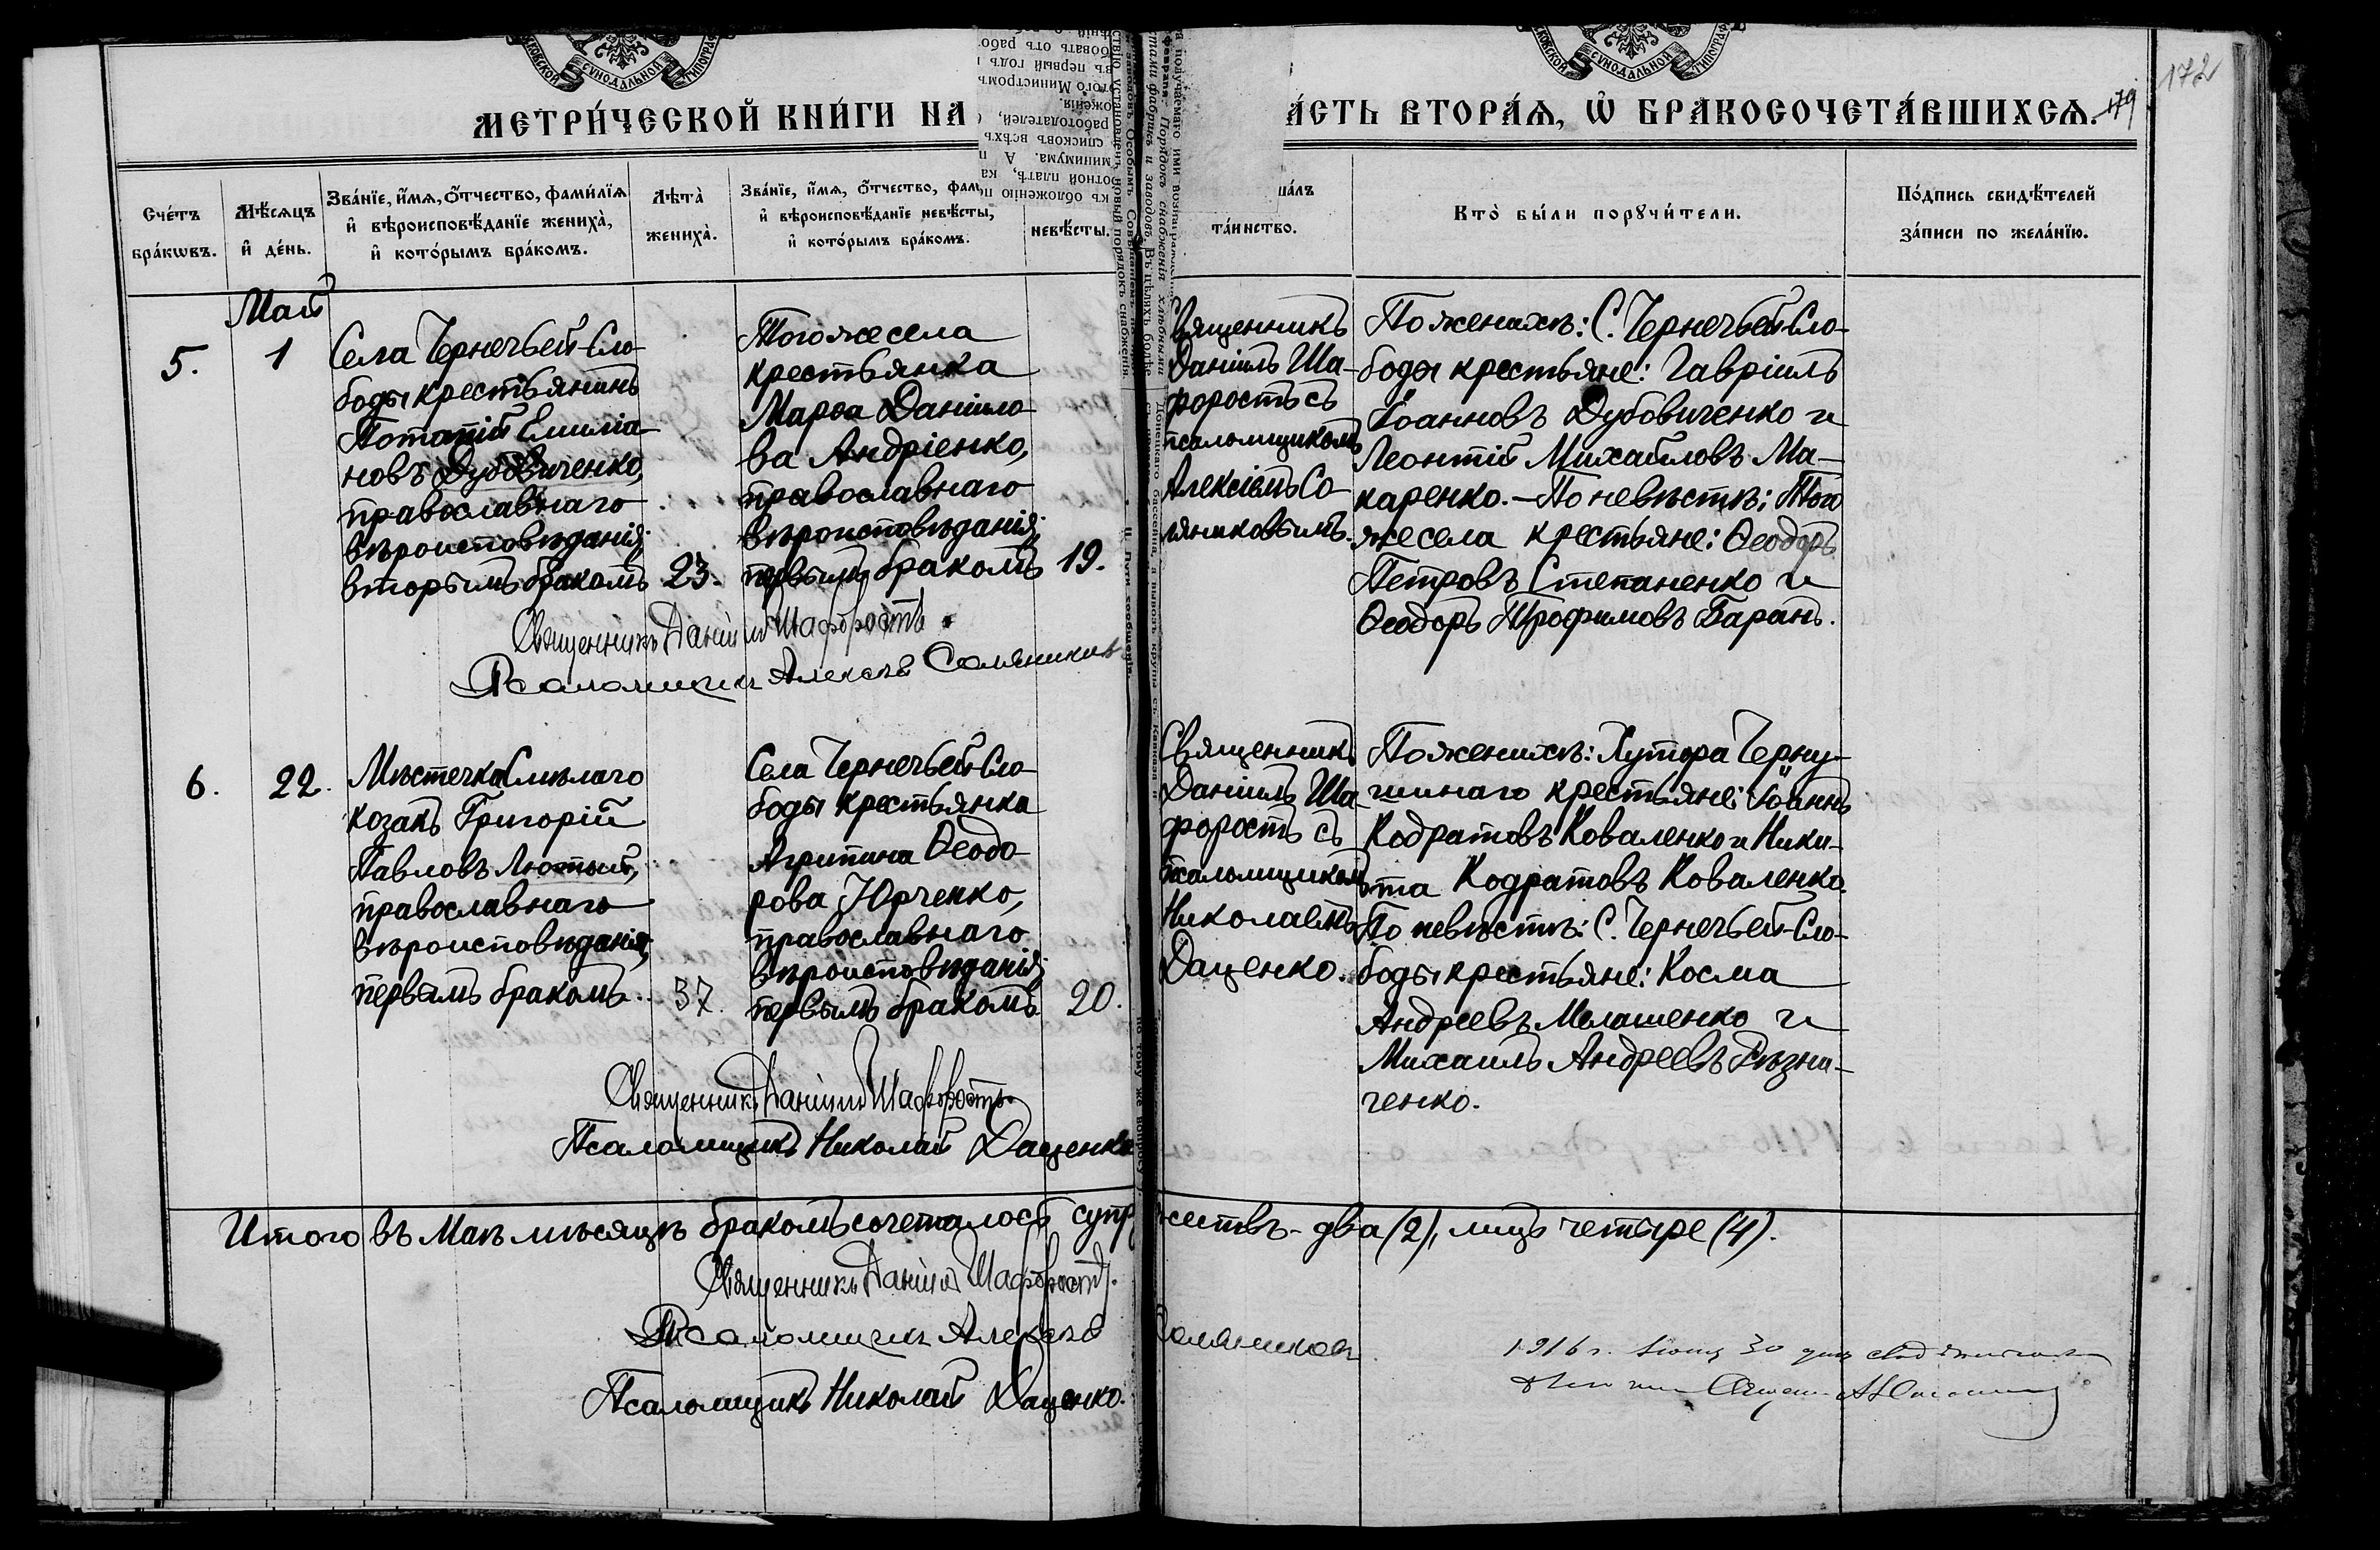 МЕТРИ́ЧЕСКОЙ КНИ́ГИ НА
А́СТЬ ВТОРА́Ѧ, Ѽ БРАКОСОЧЕТА́ВШИХСѦ.
179
172
Сче́тъ бра́кѡвъ.
Мѣ́сѧцъ и҆ де́нь.
Зва́нїе, и҆́мѧ, ѻ҆́тчество, фами́лїѧ
и҆ вѣроисповѣ́данїе жениха̀,
и҆ кото́рымъ бра́комъ.
Лѣта̀ жениха̀.
Зва́нїе, и҆́мѧ, ѻ҆́тчество, фам
и҆ вѣроисповѣ́данїе невѣ́сты,
и҆ кото́рымъ бра́комъ.
невѣ́сты.
ша́лъ
та́инство.
Кто̀ бы́ли порꙋчи́тели.
По́дпись свидѣ́телей
за́писи по жела́нїю.
Май
5.
1
Села Чернечьей-Сло-
боды крестьянинъ
Потапій Емилiа-
новъ Дубовиченко,
православнаго
вѣроисповѣданія;
вторымъ бракомъ
23.
Того же села
крестьянка
Марѳа Даніило-
ва Андріенко,
православнаго
вѣроисповѣданія;
первымъ бракомъ
19.
Священникъ
Даніилъ Ша-
форостъ съ
псаломщикомъ
Алексіемъ Со-
ляниковымъ.
По женихѣ: С. Чернечьей-Сло-
боды крестьяне: Гавріилъ
Іоанновъ Дубовиченко и
Леонтій Михайловъ Ма-
каренко. — По невѣстѣ: Того
же села крестьяне: Ѳеодоръ
Петровъ Степаненко и
Ѳеодоръ Трофимовъ Баранъ.
Священникъ Даніилъ Шафоростъ
Псаломщикъ Алексѣй Соляников
6.
22.
Мѣстечка Смѣлаго
козакъ Григорій
Павловъ Лютый,
православнаго
вѣроисповѣданія;
первымъ бракомъ.
37.
Села Чернечьей-Сло-
боды крестьянка
Агрипина Ѳеодо-
рова Юрченко,
православнаго
вѣроисповѣданія;
первымъ бракомъ
20.
Священникъ
Даніилъ Ша
форостъ съ
псаломщикомъ
Николаемъ
Даценко.
По женихѣ: Хутора Черну-
шинаго крестьяне: Іоаннъ
Кодратовъ Коваленко и Ники-
та Кодратовъ Коваленко.
По невѣстѣ: С. Чернечьей-Сло-
боды крестьяне: Косма
Андреевъ Мелашенко и
Михаилъ Андреевъ Рѣзни-
ченко.
Священникъ Даніилъ Шафоростъ.
Псаломщикъ Николай Даценко
Итого въ Маѣ мѣсяцѣ бракомъ сочеталось супр
жествъ- два (2), лицъ четыре (4).
Священникъ Даніилъ Шафоростъ.
Псаломщикъ Алексѣй
Соляников
Псаломщикъ Николай Даценко.
1916 г.
30